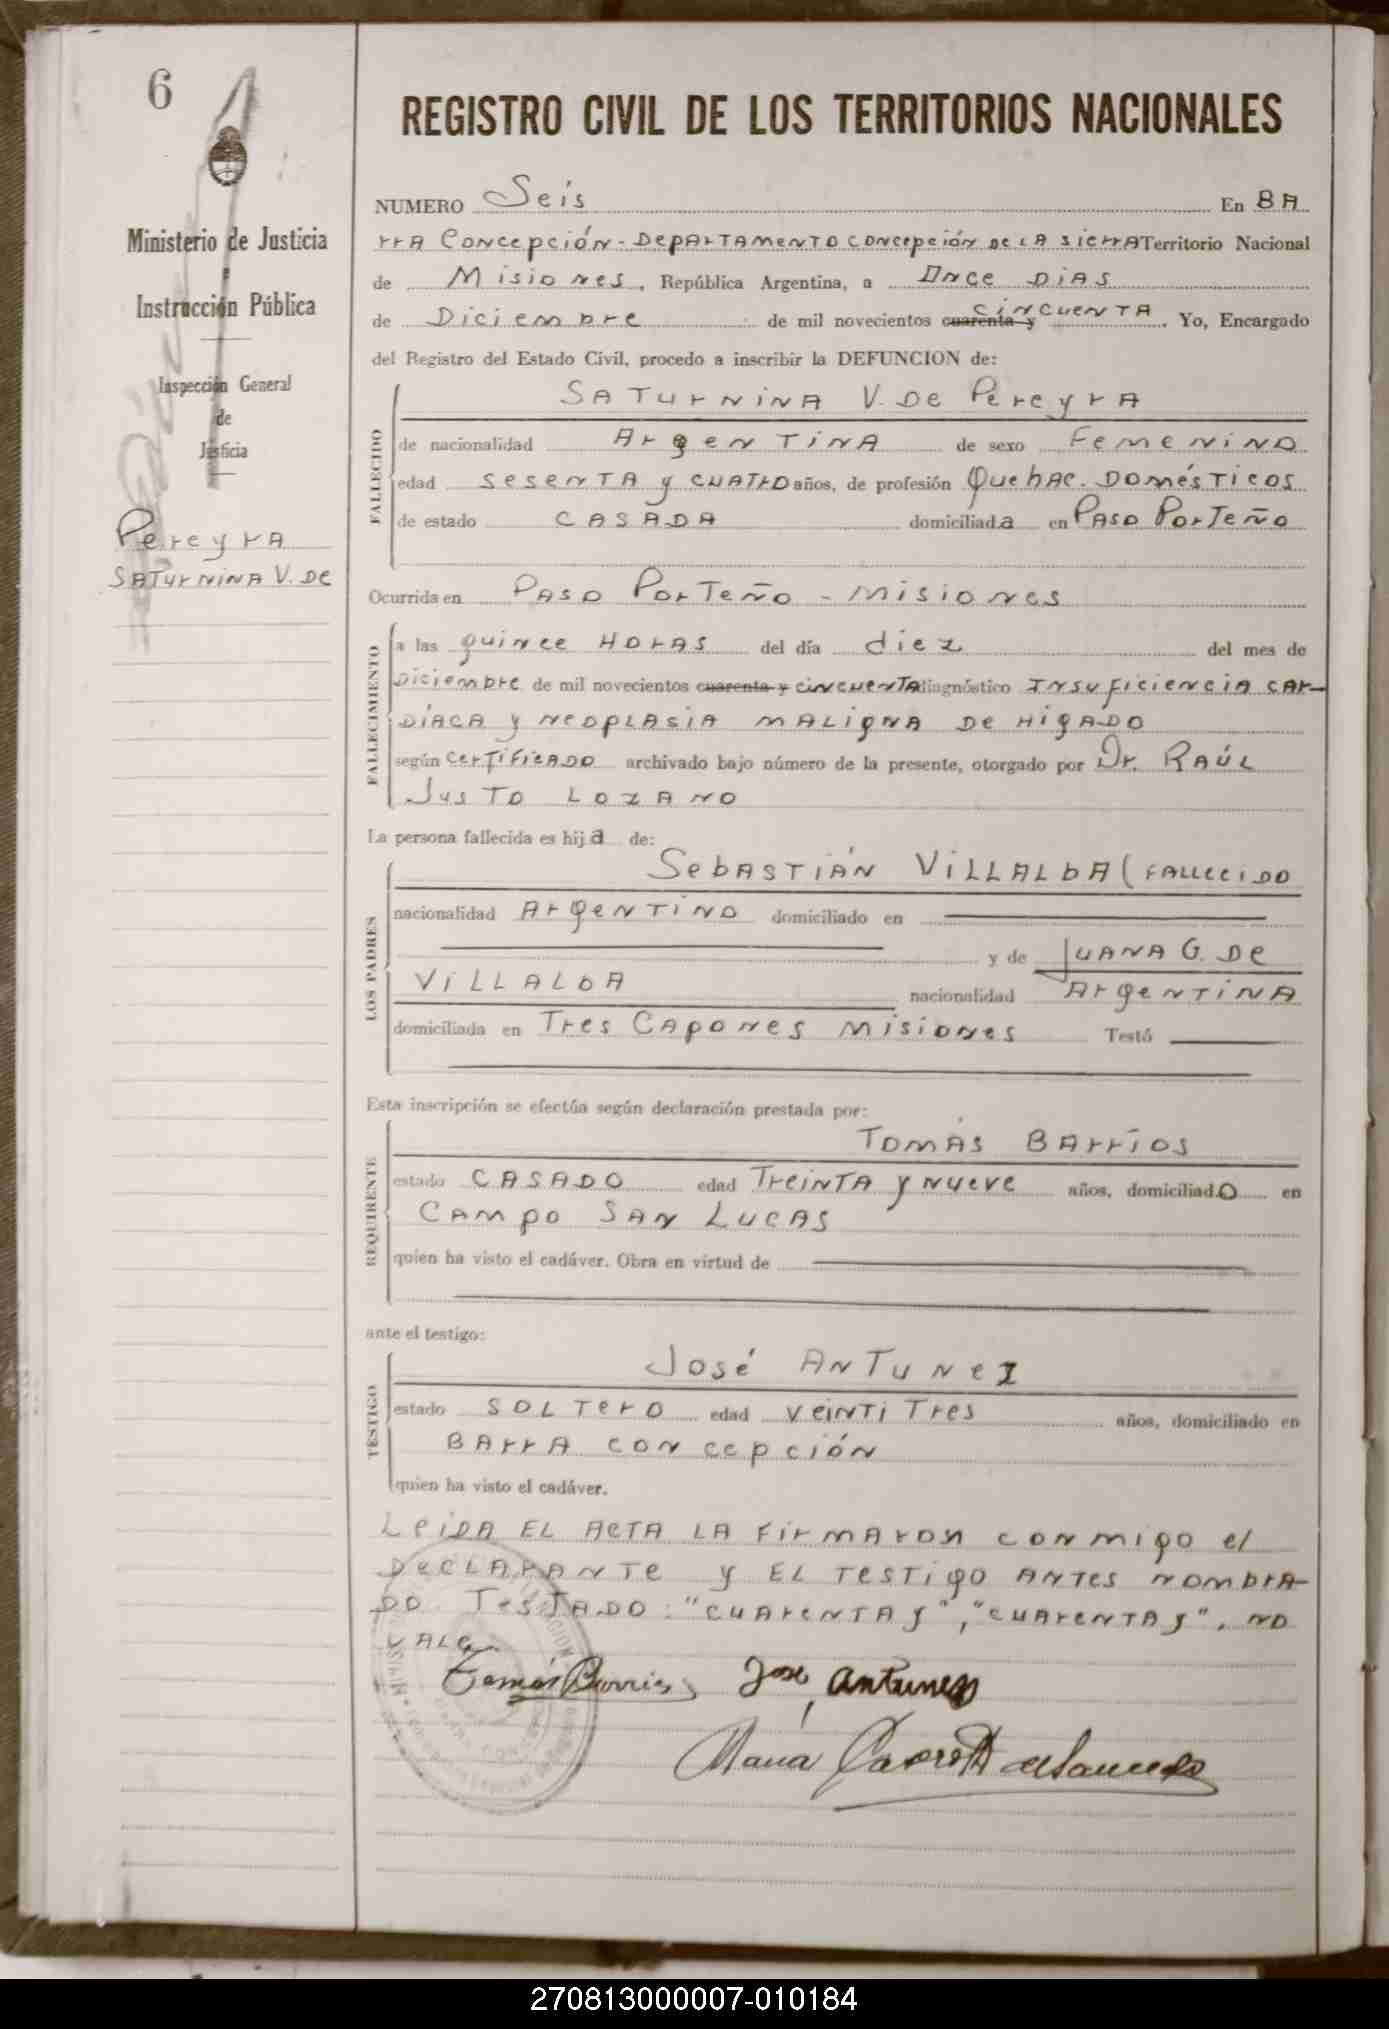 6
REGISTRO CIVIL DE LOS TERRITORIOS NACIONALES
Ministerio de Justicia
e
Instrucción Pública
Inspección General
de
Justicia
Pereyra
Saturnina V. de
NUMERO Seis En Ba
rra Concepción - Departamento Concepción de la Sierra Territorio Nacional
de Misiones, República Argentina, a Once dias
de Diciembre de mil novecientos cuarenta y cincuenta. Yo, Encargado
del Registro del Estado Civil, procedo a inscribir la DEFUNCION de:
FALLECIDO
Saturnina V. de Pereyra
de nacionalidad Argentina de sexo Femenino
edad sesenta y cuatro años, de profesión Quehac. Domésticos
de estado casada domiciliada en Paso Porteño
Ocurrida en Paso Porteño - Misiones
FALLECIMIENTO
a las quince horas del día diez del mes de
Diciembre de mil novecientos cuarenta y cincuenta diagnóstico Insuficiencia car-
díaca y neoplasia maligna de higado
según certificado archivado bajo número de la presente, otorgado por Dr. Raúl
Justo Lozano
La persona fallecida es hija de:
LOS PADRES
Sebastián Villalba (fallecido
nacionalidad Argentino domiciliado en
y de Juana G. de
Villalba nacionalidad Argentina
domiciliada en Tres Capones Misiones Testó
Esta inscripción se efectúa según declaración prestada por:
REQUIRENTE
Tomás Barrios
estado casado edad treinta y nueve años, domiciliado en
Campo San Lucas
quien ha visto el cadáver. Obra en virtud de
ante el testigo:
TESTIGO
José Antunez
estado soltero edad veintitres años, domiciliado en
Barra Concepción
quien ha visto el cadáver.
Leida el acta la firmaron conmigo el
declarante y el testigo antes nombra-
do Testado: "cuarenta y", "cuarenta y". no
vale.
Tomás Barrios José Antunez
María
270813000007-010184